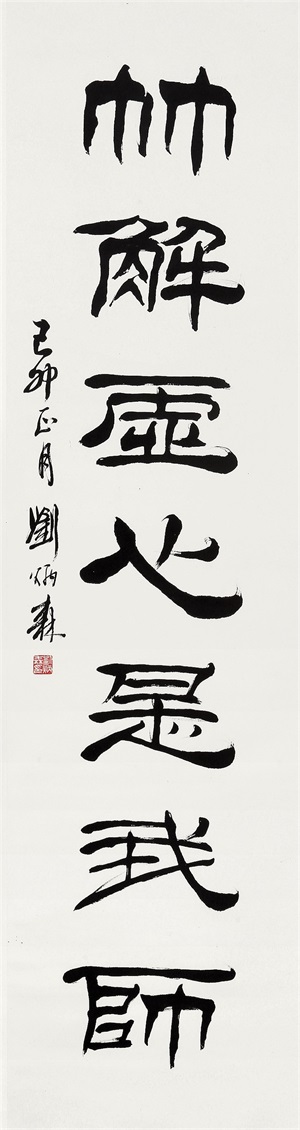 竹解虛心是我師
己卯正月 劉炳森